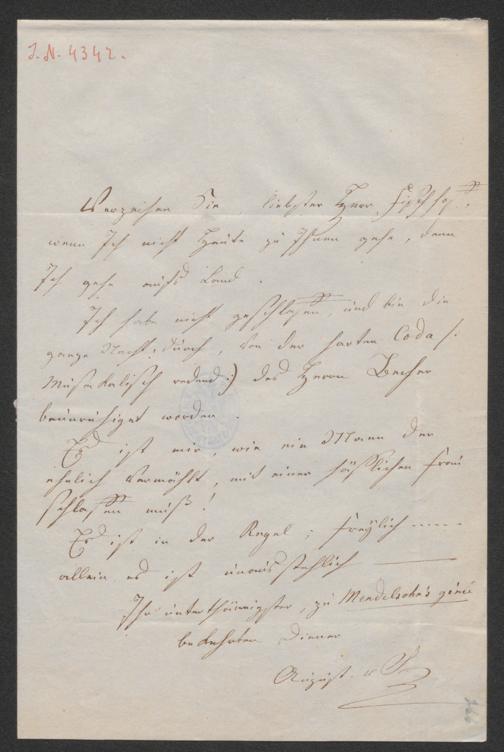 J. N. 4342.
Verzeihen Sie, liebster Herr Fischhof,
wenn Ich nicht heute zu Ihnen gehe, denn
Ich gehe aufs Land.
Ich habe nicht geschlafen, und bin die
ganze Nacht durch, von der harten Coda /:
Musikalisch redend :) des Herrn Becher
beunruhiget worden.
Es ist mir, wie ein Mann der
ehelich vermählt, mit einer häßlichen Frau
schlafen muß!
Es ist in der Regel; freylich -----
allein es ist unausstehlich ———
Ihr unterthänigster, zu Mendelsohn's génie
bekehrter Diener
August